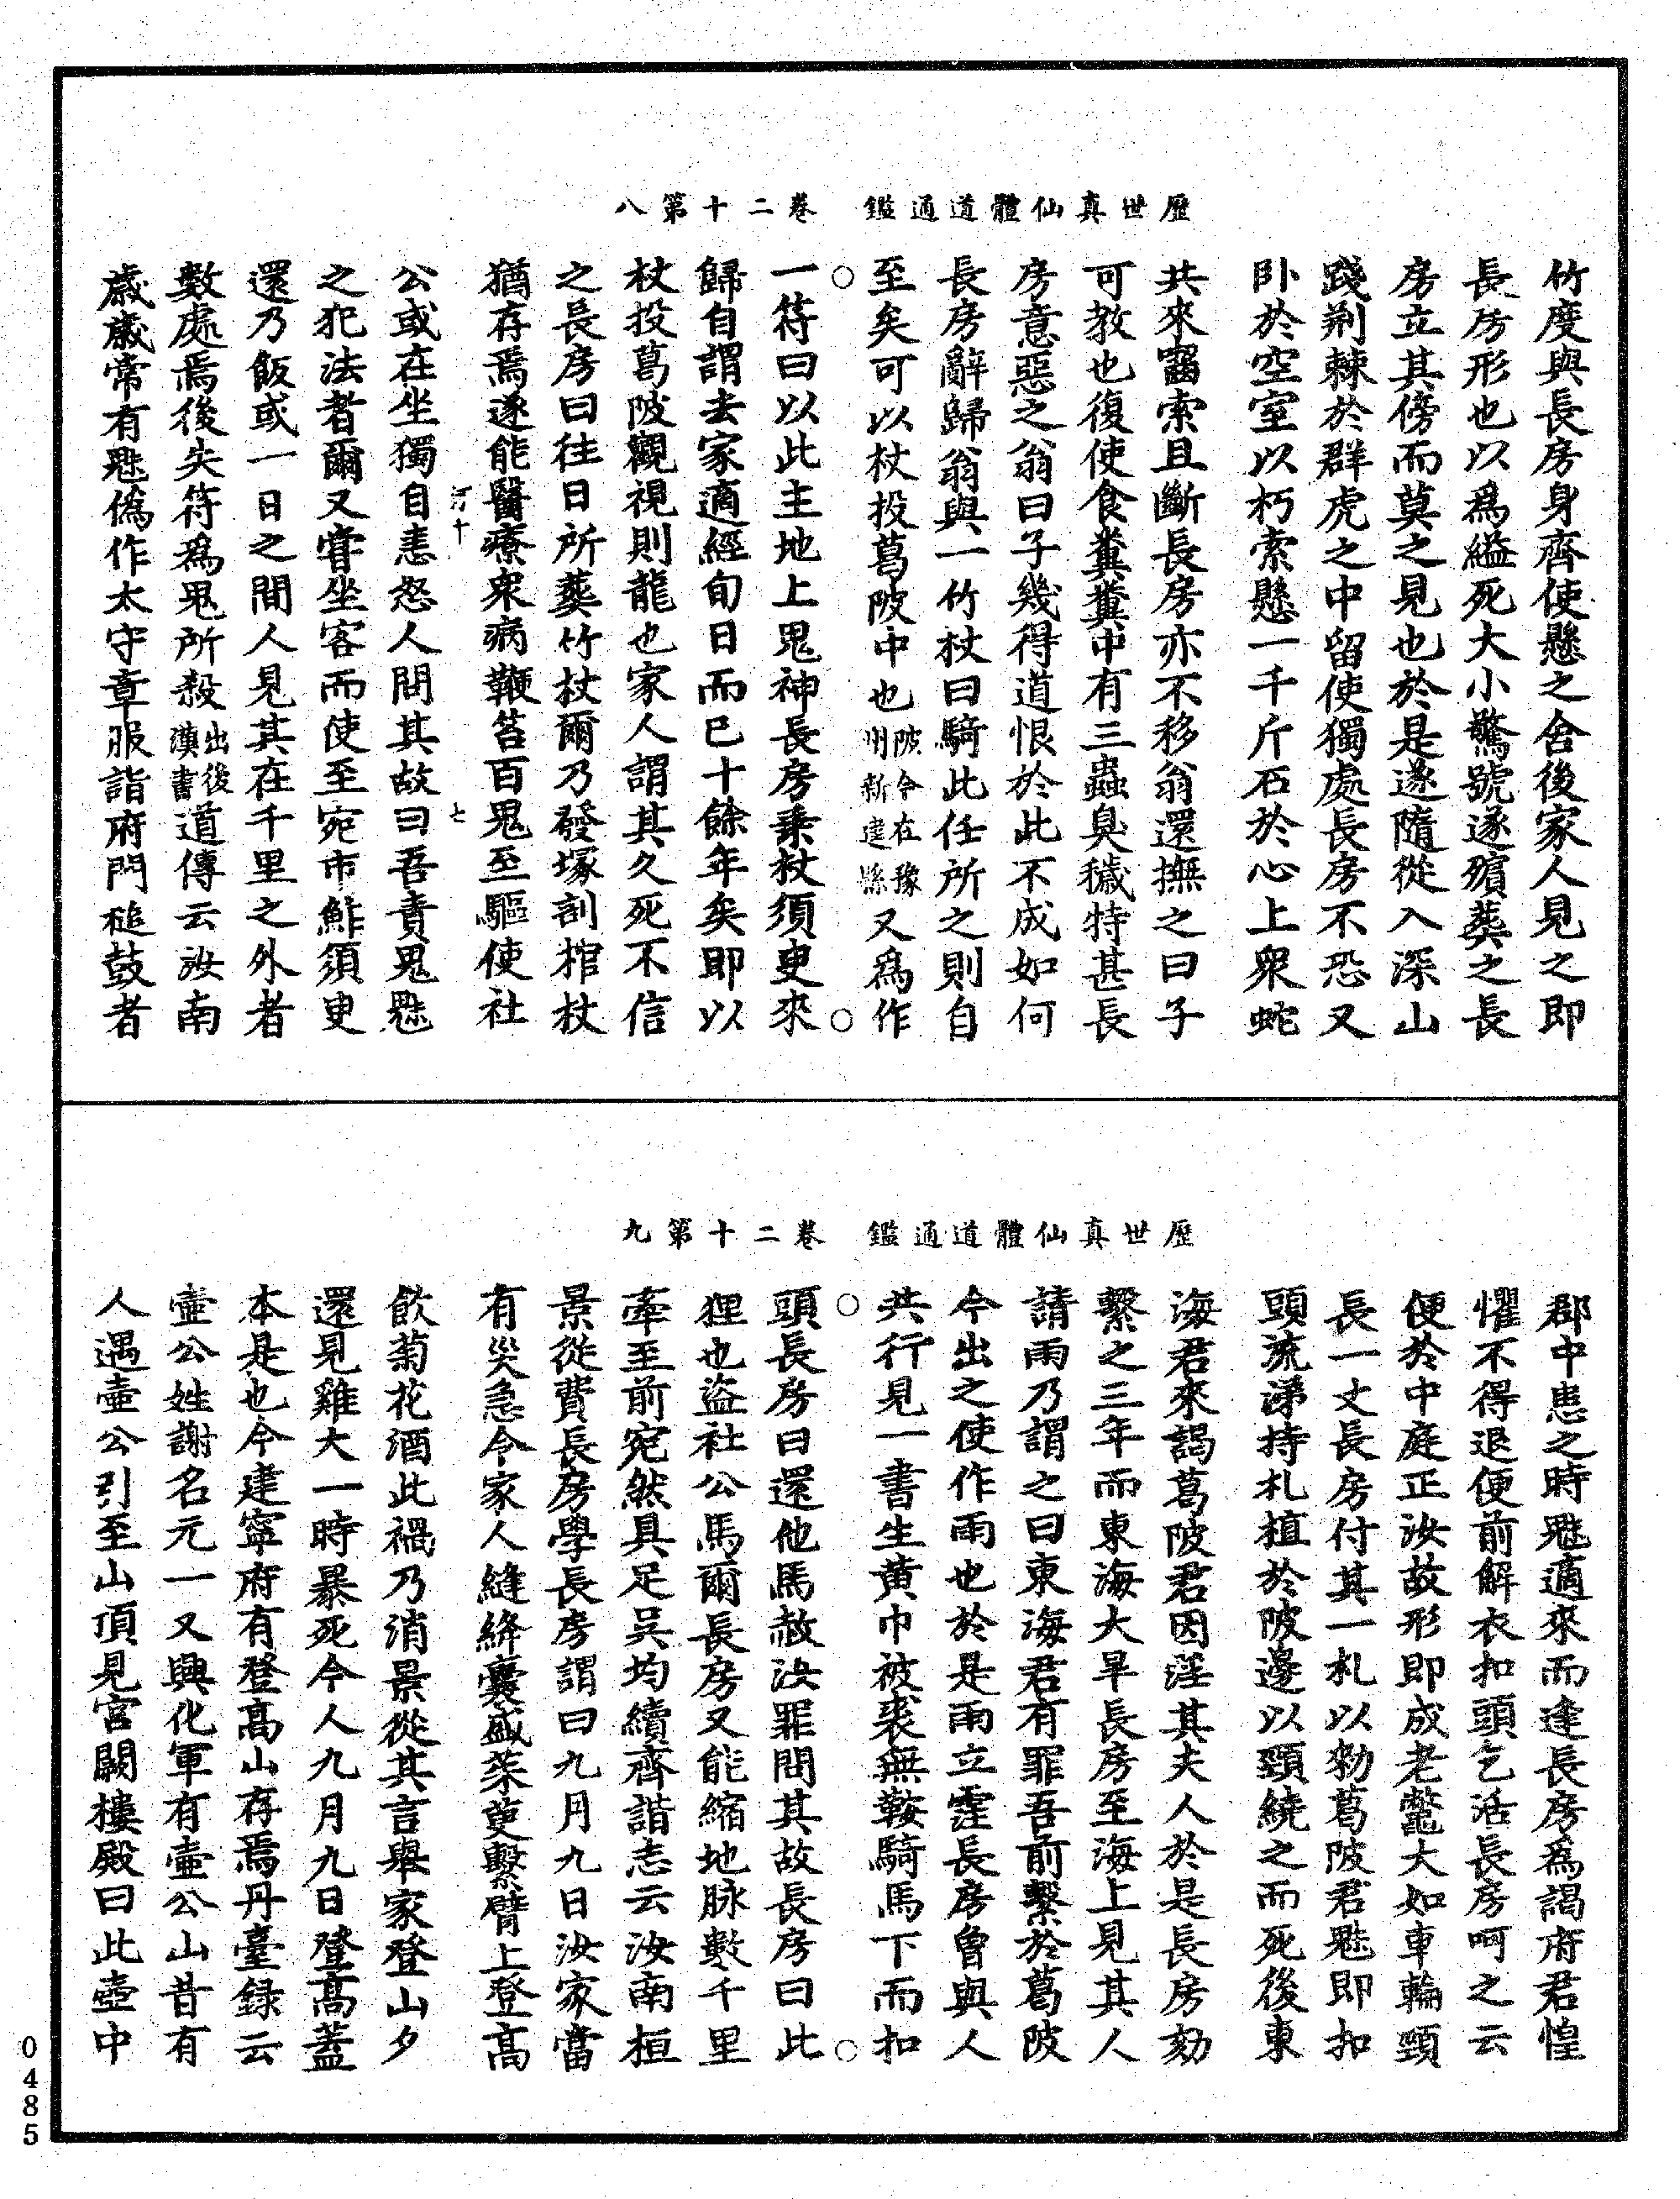 歷世真仙體道通鑑　卷二十　第八
竹度與長房身齊使懸之舍後家人見之即
長房形也以為縊死大小驚號遂殯葬之長
房立其傍而莫之見也於是遂隨從入深山
踐荆棘於群虎之中留使獨處長房不恐又
卧於空室以朽索懸一千斤石於心上衆蛇
共來齧索且斷長房亦不移翁還撫之曰子
可教也復使食糞糞中有三蟲臭穢特甚長
房意惡之翁曰子幾得道恨於此不成如何
長房辭歸翁與一竹杖曰騎此任所之則自
至矣可以杖投葛陂中也陂今在豫州新建縣又爲作
一符曰以此主地上鬼神長房乗杖須臾來
歸自謂去家適經旬日而已十餘年矣即以
杖投葛陂觀視則龍也家人謂其久死不信
之長房曰往日所葬竹杖爾乃發塚剖棺杖
猶存焉遂能醫療衆病鞭笞百鬼至驅使社
公或在坐獨自恚怒人問其故曰吾責鬼魅
之犯法者爾又嘗坐客而使至宛市鮓須臾
還乃飯或一日之間人見其在千里之外者
數處焉後失符爲鬼所殺出後漢書道傳云汝南
歲歲常有魅偽作太守章服詣府門槌鼓者
歷世真仙體道通鑑　卷二十　第九
郡中患之時魅適來而逢長房爲謁府君惶
懼不得退便前解衣扣頭乞活長房呵之云
便於中庭正汝故形即成老鼈大如車輪頸
長一丈長房付其一札以勑葛陂君魅即扣
頭流涕持札植於陂邊以頸繞之而死後東
海君來謁葛陂君因淫其夫人於是長房劾
繫之三年而東海大旱長房至海上見其人
請雨乃謂之曰東海君有罪吾前繫於葛陂
今出之使作雨也於是雨立霔長房曾與人
共行見一書生黄巾被裘無鞍騎馬下而扣
頭長房曰還他馬赦汝罪問其故長房曰此
狸也盜社公馬爾長房又能縮地脉數千里
牽至前宛然具足吳均續齊諧志云汝南桓
景從費長房學長房謂曰九月九日汝家當
有災急令家人縫絳囊盛茱萸繫臂上登高
飲菊花酒此禍乃消景從其言舉家登山夕
還見雞犬一時暴死今人九月九日登高蓋
本是也今建寧府有登高山存焉丹臺録云
壷公姓謝名元一又興化軍有壷公山昔有
人遇壷公引至山頂見宮闕樓殿曰此壺中
0485